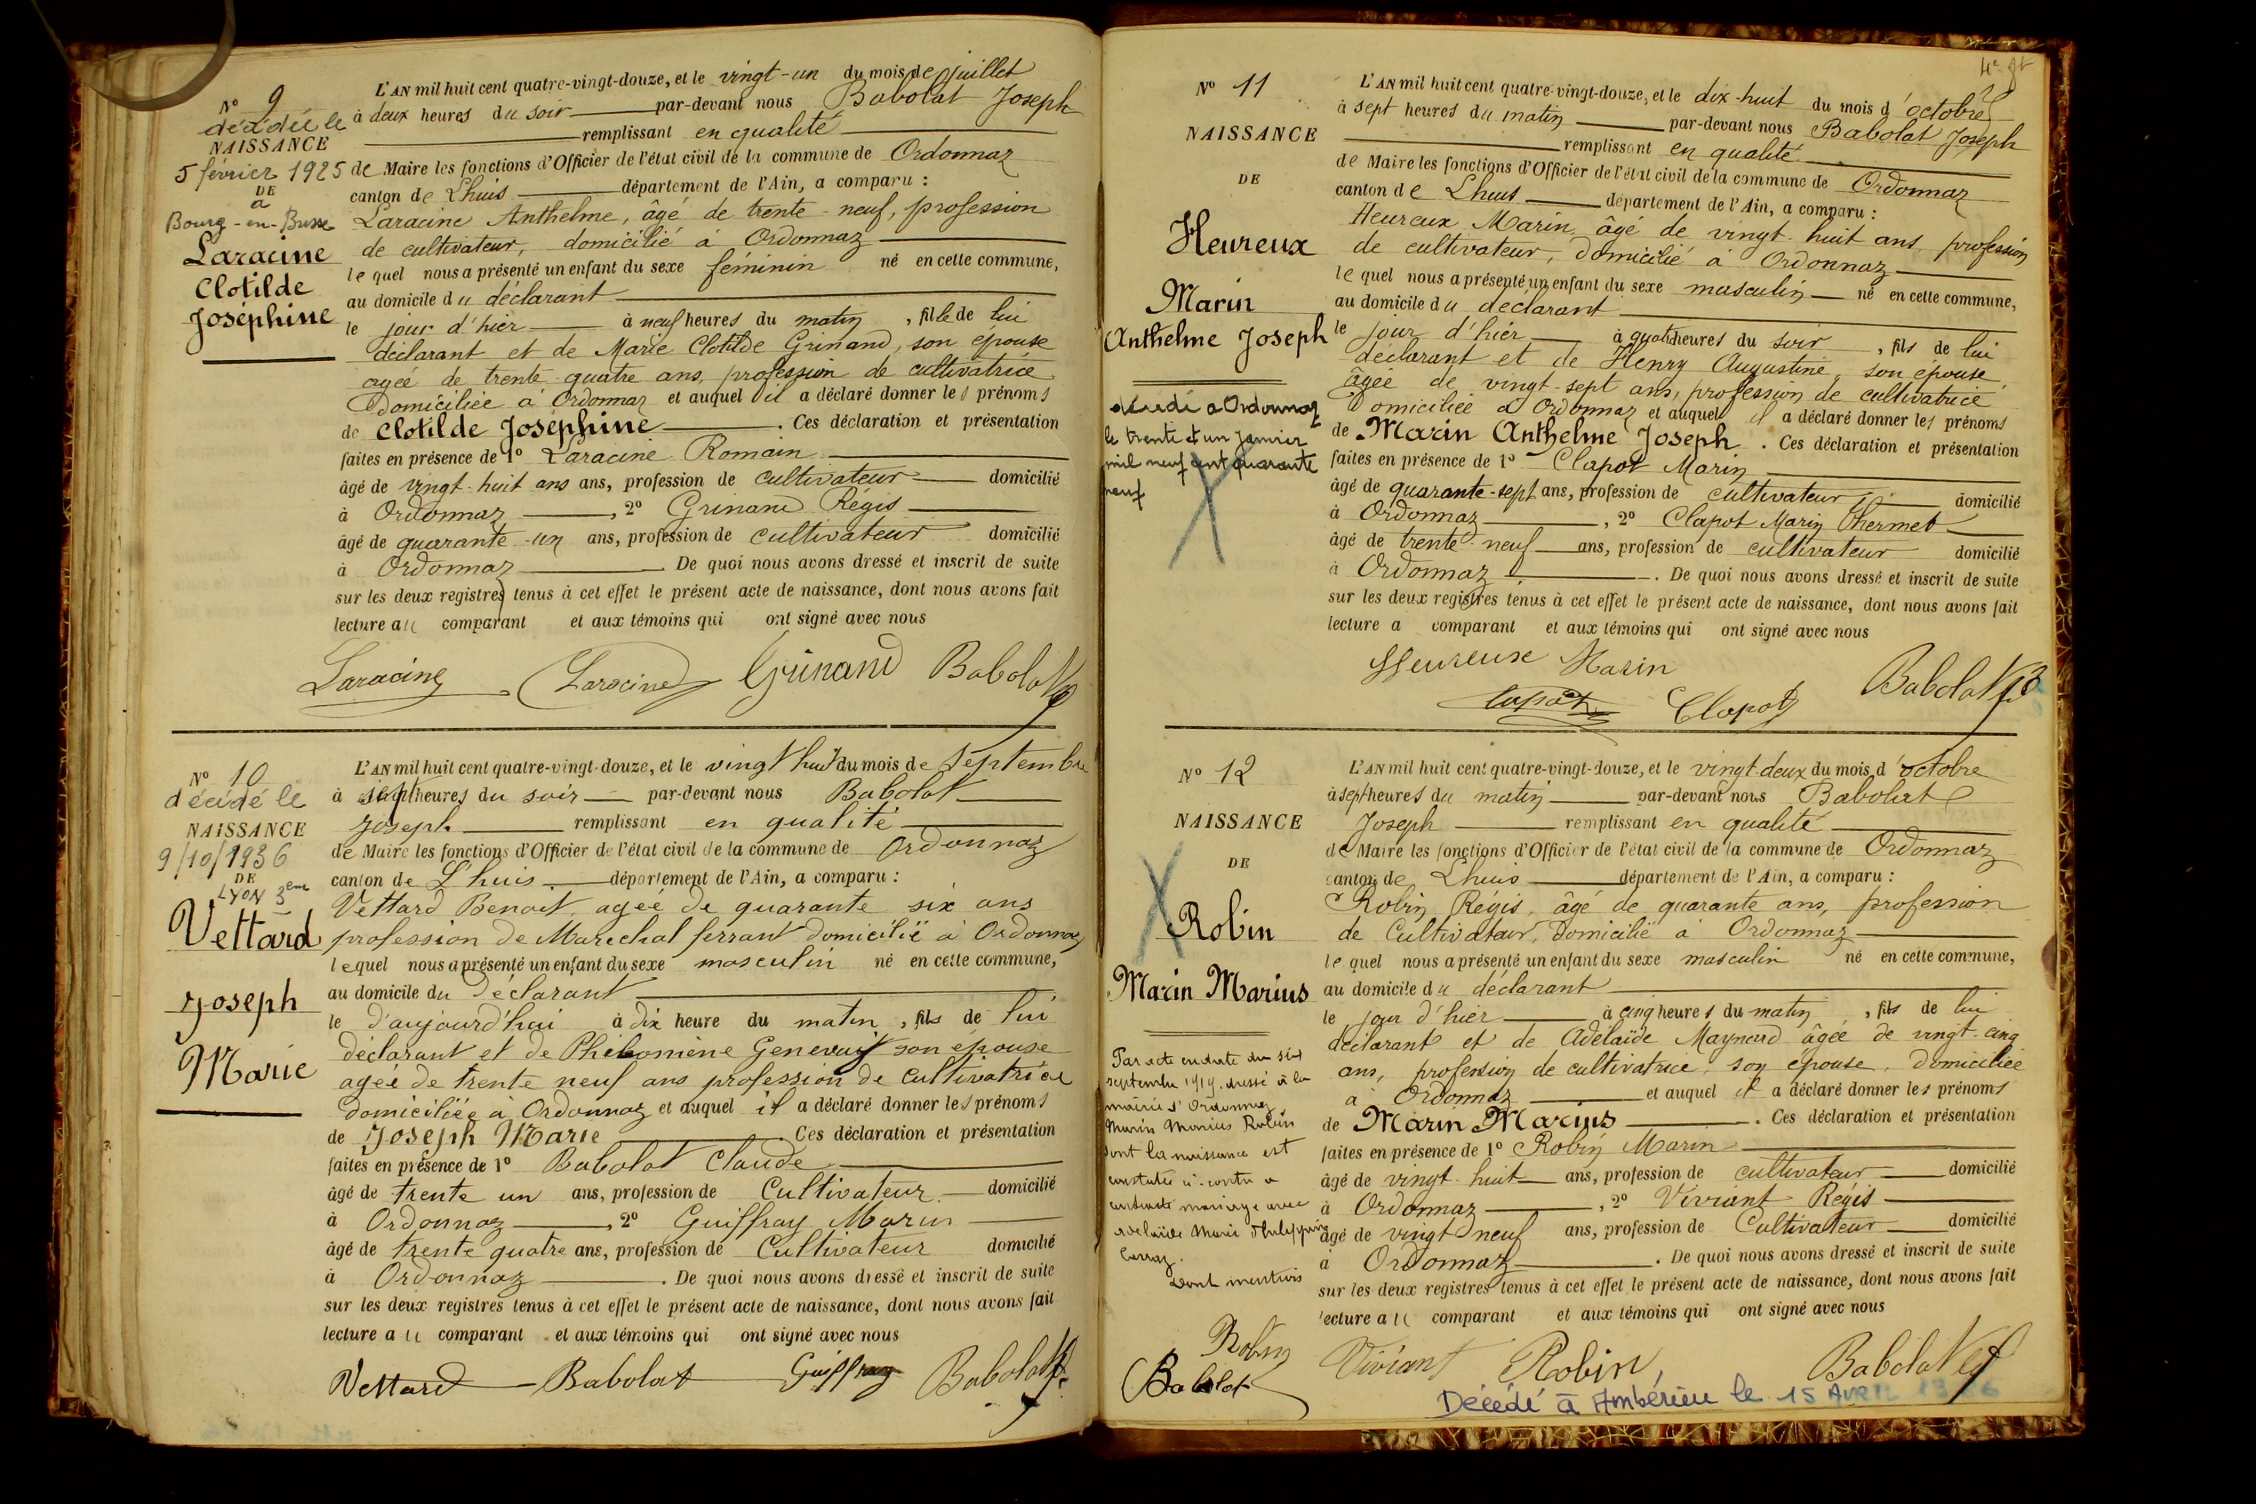 N° 9
décédée le
NAISSANCE
5 février 1925
DE
à
Bourg-en-Bresse
Laracine
Clotilde
Joséphine
L'AN mil huit cent quatre-vingt-douze, et le vingt-un du mois de Juillet
à deux heures du soir par-devant nous Babolat Joseph
remplissant en qualité
de Maire les fonctions d'Officier de l'état civil de la commune de Ordonnaz
canton de Lhuis département de l'Ain, a comparu :
Laracine Anthelme, âgé de trente-neuf, profession
de cultivateur, domicilié à Ordonnaz
lequel nous a présenté un enfant du sexe féminin né en cette commune,
au domicile du déclarant
le jour d'hier à neuf heures du matin, fille de lui
déclarant et de Marie Clotilde Grinand, son épouse
agée de trente-quatre ans, profession de cultivatrice
Domiciliée à Ordonnaz et auquel il a déclaré donner les prénoms
de Clotilde Joséphine. Ces déclaration et présentation
faites en présence de 1° Laracine Romain
âgé de vingt-huit ans ans, profession de cultivateur domicilié
à Ordonnaz, 2° Grinand Régis
âgé de quarante-un ans, profession de cultivateur domicilié
à Ordonnaz. De quoi nous avons dressé et inscrit de suite
sur les deux registres tenus à cet effet le présent acte de naissance, dont nous avons fait
lecture au comparant et aux témoins qui ont signé avec nous
Laracine Laracine Grinand Babolat
N° 10
décédé le
NAISSANCE
9/10/1936
DE
LYON 3eme
Vettard
Joseph
Marie
L'AN mil huit cent quatre-vingt-douze, et le vingt huit du mois de Septembre
à sept heures du soir par-devant nous Babolat
Joseph remplissant en qualité
de Maire les fonctions d'Officier de l'état civil de la commune de Ordonnaz
canton de Lhuis département de l'Ain, a comparu :
Vettard Benoit, agée de quarante six ans
profession de Marechal ferrant domicilié à Ordonnaz
lequel nous a présenté un enfant du sexe masculin né en cette commune,
au domicile du Déclarant
le d'aujourd'hui à dix heure du matin, fils de lui
déclarant et de Philomène son épouse
agée de trente neuf ans profession de cultivatrice
domiciliée à Ordonnaz et auquel il a déclaré donner les prénoms
de Joseph Marie Ces déclaration et présentation
faites en présence de 1° Babolat Claude
âgé de trente un ans, profession de Cultivateur domicilié
à Ordonnaz, 2° Guiffray Marin
âgé de trente quatre ans, profession de Cultivateur domicilié
à Ordonnaz. De quoi nous avons dressé et inscrit de suite
sur les deux registres tenus à cet effet le présent acte de naissance, dont nous avons fait
lecture au comparant et aux témoins qui ont signé avec nous
Vettard Babolat Guiffray Babolat
N° 11
NAISSANCE
DE
Heureux
Marin
Anthelme Joseph
décédé à Ordonnaz
le trente et un janvier
mil neuf cent quarante
neuf
L'AN mil huit cent quatre-vingt-douze, et le dix-huit du mois d'octobre
à sept heures du matin par-devant nous Babolat Joseph
remplissant en qualité
de Maire les fonctions d'Officier de l'état civil de la commune de Ordonnaz
canton de Lhuis département de l'Ain, a comparu :
Heureux Marin, âgé de vingt-huit ans, profession
de cultivateur, domicilié à Ordonnaz
lequel nous a présenté un enfant du sexe masculin né en cette commune,
au domicile du déclarant
le jour d'hier à quatre heures du soir, fils de lui
déclarant et de Henry Augustine, son épouse,
âgée de vingt-sept ans, profession de cultivatrice
Domiciliée à Ordonnaz et auquel il a déclaré donner les prénoms
de Marin Anthelme Joseph. Ces déclaration et présentation
faites en présence de 1° Clapot Marin
âgé de quarante-sept ans, profession de cultivateur domicilié
à Ordonnaz, 2° Clapot Marin Thermet
âgé de trente-neuf ans, profession de cultivateur domicilié
à Ordonnaz. De quoi nous avons dressé et inscrit de suite
sur les deux registres tenus à cet effet le présent acte de naissance, dont nous avons fait
lecture a comparant et aux témoins qui ont signé avec nous
Heureux Marin Babolat
Clapot Clapot
N° 12
NAISSANCE
DE
Robin
Marin Marius
Par acte en date du six
septembre 1919, dressé à la
mairie d'Ordonnaz,
Marin Marius Robin
dont la naissance est
constatée ci-contre a
contracté mariage avec
Adelaïde Marie Philippine
Carraz.
Dont mention
Robin
Babolat
L'AN mil huit cent quatre-vingt-douze, et le vingt-deux du mois d'octobre
à sept heures du matin par-devant nous Babolat
Joseph remplissant en qualité
de Maire les fonctions d'Officier de l'état civil de la commune de Ordonnaz
canton de Lhuis département de l'Ain, a comparu :
Robin Régis, âgé de quarante ans, profession
de Cultivateur, Domicilié à Ordonnaz
lequel nous a présenté un enfant du sexe masculin né en cette commune,
au domicile du déclarant
le jour d'hier à cinq heures du matin, fils de lui
déclarant et de Adélaïde Maynard âgée de vingt-cinq
ans, profession de cultivatrice, son épouse, Domiciliée
à Ordonnaz et auquel il a déclaré donner les prénoms
de Marin Marius. Ces déclaration et présentation
faites en présence de 1° Robin Marin
âgé de vingt-huit ans, profession de cultivateur domicilié
à Ordonnaz, 2° Viviant Régis
âgé de vingt neuf ans, profession de Cultivateur domicilié
à Ordonnaz. De quoi nous avons dressé et inscrit de suite
sur les deux registres tenus à cet effet le présent acte de naissance, dont nous avons fait
lecture au comparant et aux témoins qui ont signé avec nous
Viviant Robin Babolat
Décédé à Ambérieu le 15 AVRIL